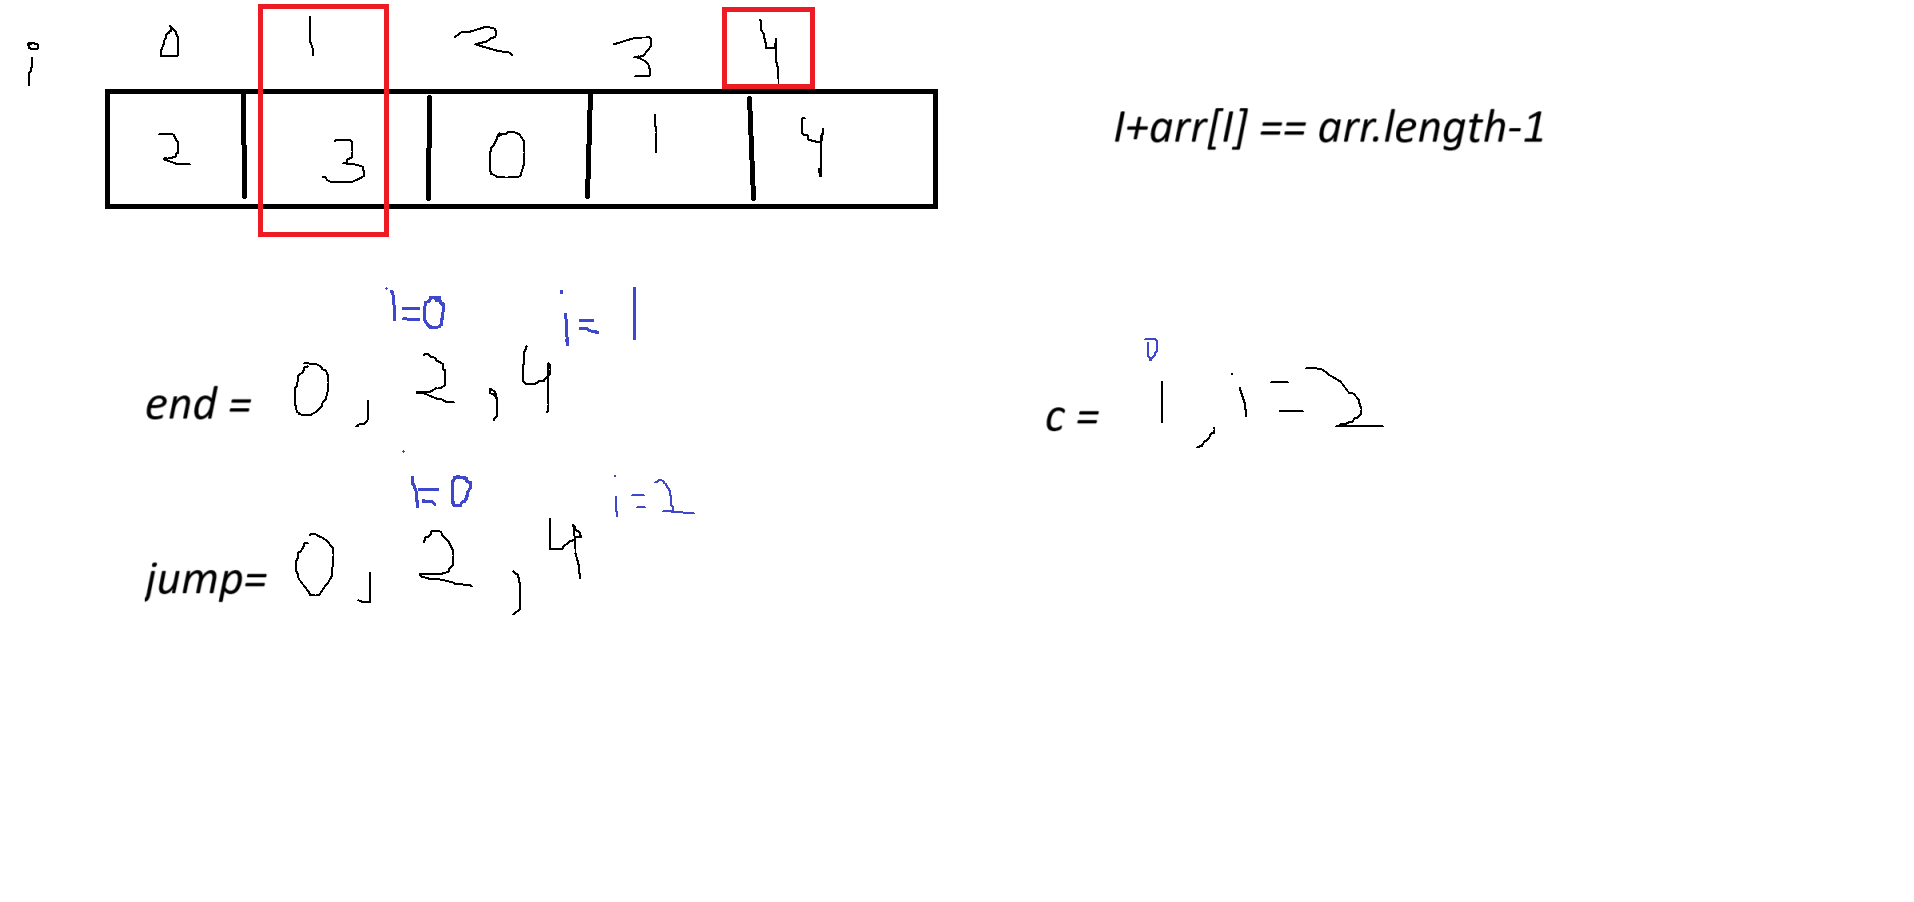 i 0 1 2 3 4
2 3 0 1 4
I+arr[I] == arr.length-1
i=0 i=1
end = 0, 2, 4
0
c = 1, i=2
i=0 i=2
jump= 0, 2, 4